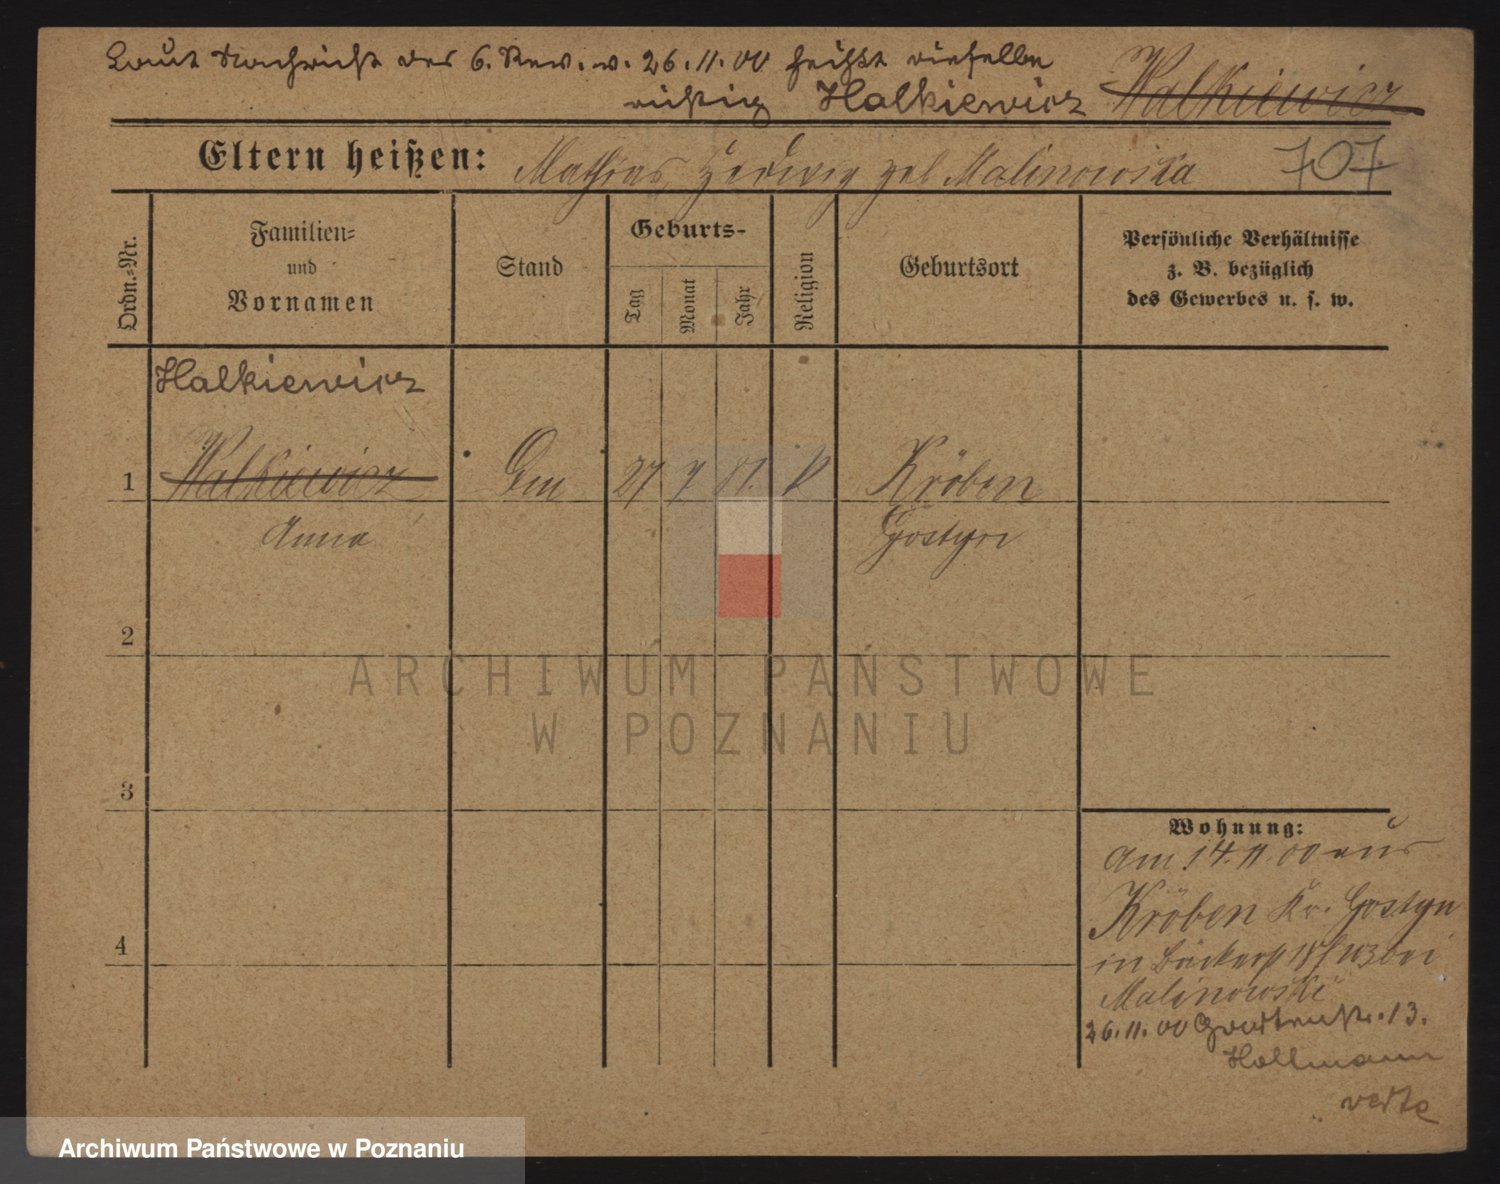 Laut Nachricht des 6. Rev. v. 26.11.00 heißt dieselbe
richtig Halkiewicz Walkiewicz
Eltern heißen: Mathias, Hedwig geb Malinowska 707
Ordn.-Nr.
Familien-
und
Vornamen
Stand
Geburts-
Tag
Monat
Jahr
Religion
Geburtsort
Persönliche Verhältnisse
z. B. bezüglich
des Gewerbes u. s. w.
Halkiewicz
1 Walkiewicz 27 7 81. k Kröben
Anna Gostyn
2
3
4
Wohnung:
Am 14.11.00 aus
Kröben Kr. Gostyn
in bei
Malinowski
26.11.00 Gartenstr. 13.
Hollmann
verte
ARCHIWUM PAŃSTWOWE
W POZNANIU
Archiwum Państwowe w Poznaniu